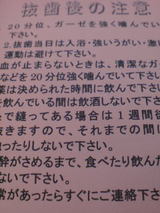 抜歯後の注意
20分位、ガーゼを強く噛んで
い。
2.抜歯当日は入浴・強いうがい・激し
運動は避けて下さい。
血が止まらないときは、清潔なガー
などを20分強く噛んでいて下
薬は決められた時間に飲んで下
を飲んでいる間は飲酒しないで下
で縫ってある場合は1週間後
抜きますので、それまでの間
ったりしないで下さい。
酔がさめるまで、食べたり飲んだ
ないで下さい。
常があったらすぐにご連絡下さ